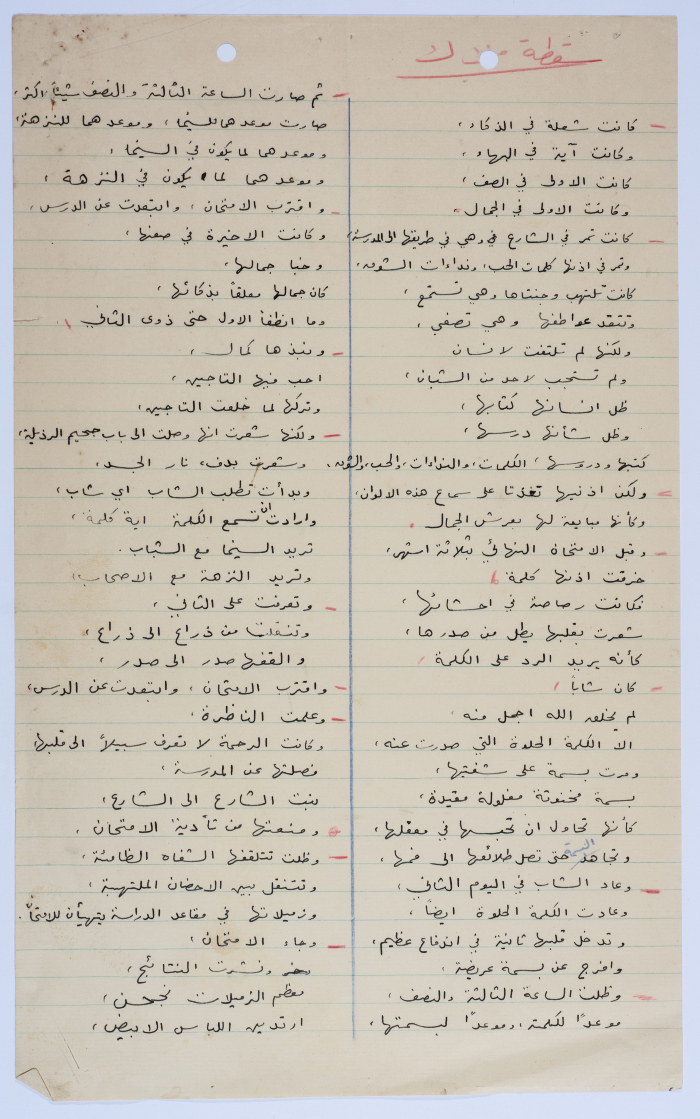 سقطة ملاك
كانت شعلة في الذكاء،
وكانت آية في البهاء،
كانت الاولى في الصف،
وكانت الاولى في الجمال.
كانت تمر في الشارع في وهي في طريقها الى المدرسة،
وتمر في اذنها كلمات الحب، ونداءات الشوق.
كانت تلتهب وجنتاها وهي تستمع،
وتتقد عواطفها وهي تصغي،
ولكنها لم تلتفت لانسان
ولم تستجب لاحد من الشبان،
ظل انسانها كتابها،
وظل شأنها درسها،
كتبها ودروسها، الكلمات، والنداءات، والحب، والشوق.
ولكن اذنيها تغذتا على سماع هذه الالوان،
وكأنها مبايعة لها بعرش الجمال.
وقبل الامتحان النهائي بثلاثة اشهر،
خرقت اذنها كلمة،
فكانت رصاصة في احشائها،
شعرت بقلبها يطل من صدرها،
كأنه يريد الرد على الكلمة،
كان شاباً،
لم يخلق الله اجمل منه،
الا الكلمة الحلوة التي صدرت عنه،
ومرت بسمة على شفتيها،
بسمة مخنوقة مغلولة مقيدة،
كأنها تحاول ان تحبسها في معقلها،
وتجاهد البسمة حتى تصل طلائعها الى فمها،
وعاد الشاب في اليوم الثاني،
وعادت الكلمة الحلوة ايضاً،
وتدخل قلبها ثانية في اندفاع عظيم،
وافرج عن بسمة عريضة،
وظلت الساعة الثالثة والنصف،
موعداً لكلمته، وموعداً لبسمتها،
ثم صارت الساعة الثالثة والنصف شيئاً اكثر،
صارت موعدهما للسينما، وموعدهما للنزهة،
وموعدهما لما يكون في السينما،
وموعدهما لما يكون في النزهة،
واقترب الامتحان، وابتعدت عن الدرس،
وكانت الاخيرة في صفها،
وخبا جمالها،
كان جمالها معلقاً بذكائها،
وما انطفأ الاول حتى ذوى الثاني،
ونبذها كمال،
احب فيها التاجين،
وتركها لما خلعت التاجين،
ولكنها شعرت انها وصلت الى باب جحيم الرذيلة،
وشعرت بدفء نار الجسد،
وبدأت تطلب الشاب اي شاب،
وارادت ان تسمع الكلمة اية كلمة،
تريد السينما مع الشباب.
وتريد النزهة مع الاصحاب،
وتعرفت على الثاني،
وتنقلت من ذراع الى ذراع،
والقفها صدر الى صدر،
واقترب الامتحان، وابتعدت عن الدرس،
وعلمت الناظرة،
وكانت الرحمة لا تعرف سبيلاً الى قلبها،
فصلتها عن المدرسة،
بنت الشارع الى الشارع،
ومنعتها من تأدية الامتحان،
وظلت تتلقفها الشفاه الظامئة،
وتتنقل بين الاحضان الملتهبة،
وزميلاتها في مقاعد الدراسة يتهيأن للامتحان.
وجاء الامتحان،
ونشرت النتائج،
معظم الزميلات نجحن،
ارتدين اللباس الابيض،